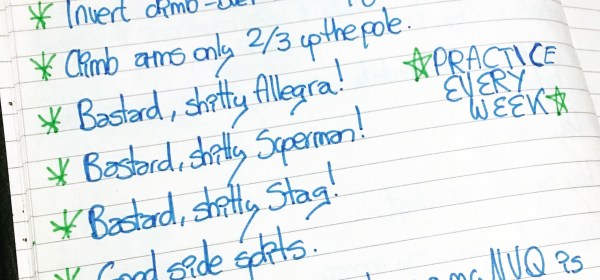 Invert climb -
Climb arms only 2/3 up the pole.
☆PRACTICE
EVERY
WEEK☆
Bastard, shitty Allegra!
Bastard, shitty Superman!
Bastard, shitty Stag!
Good side splits.
my NVQ is